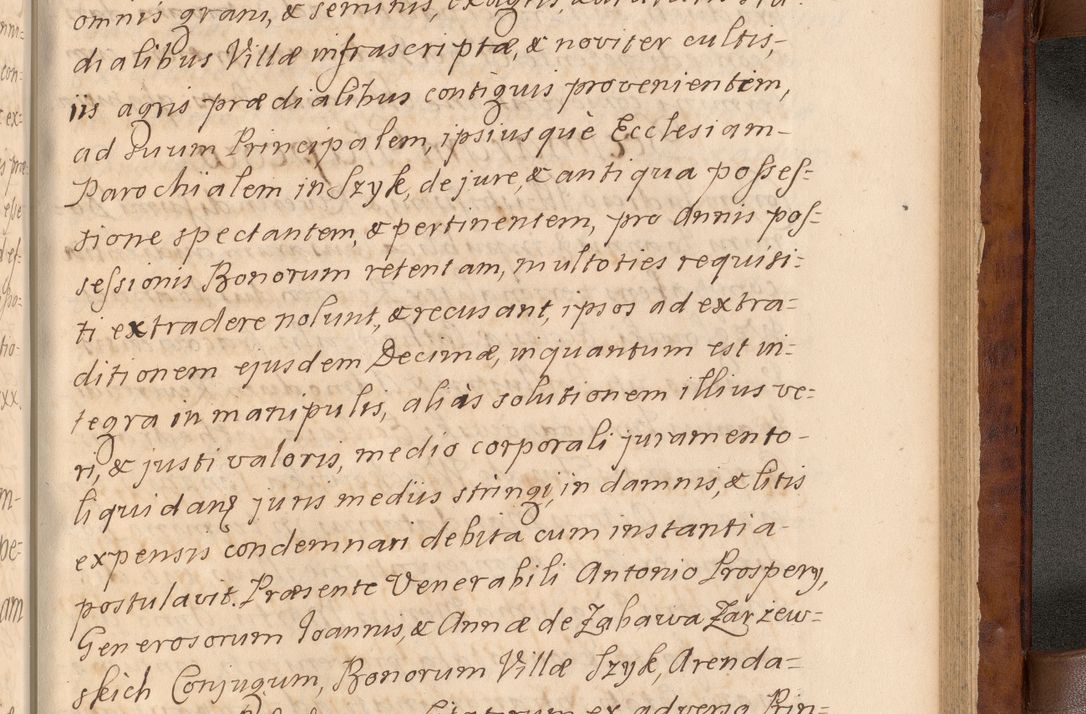 omnis grani, & seminis, ex agris
dialibus Villæ infrascriptæ, & noviter cultis,
iis agris prædialibus contiguis provenientem,
ad suum Principalem, ipsiusquè Ecclesiam
Parochialem in Szyk, de jure, & antiqua posses=
sione spectantem, & pertinentem, pro Annis pos=
sessionis Bonorum retentam, multoties requisi=
ti extradere nolunt, & recusant, ipsos ad extra=
ditionem ejusdem Decimæ, inquantum est in=
tegra in manipulis, alias solutionem illius ve=
ri, & justi valoris, medio corporali juramento
liquidanꝫ juris mediis stringi, in damnis, & litis
expensis condemnari debita cum instantia
postulavit. Præsente Venerabili Antonio Prospery,
Generosorum Ioannis, & Annæ de Zabawa Zarzew=
skich Conjugum, Bonorum Villæ Szyk, Arenda=
ex adversa Prin=